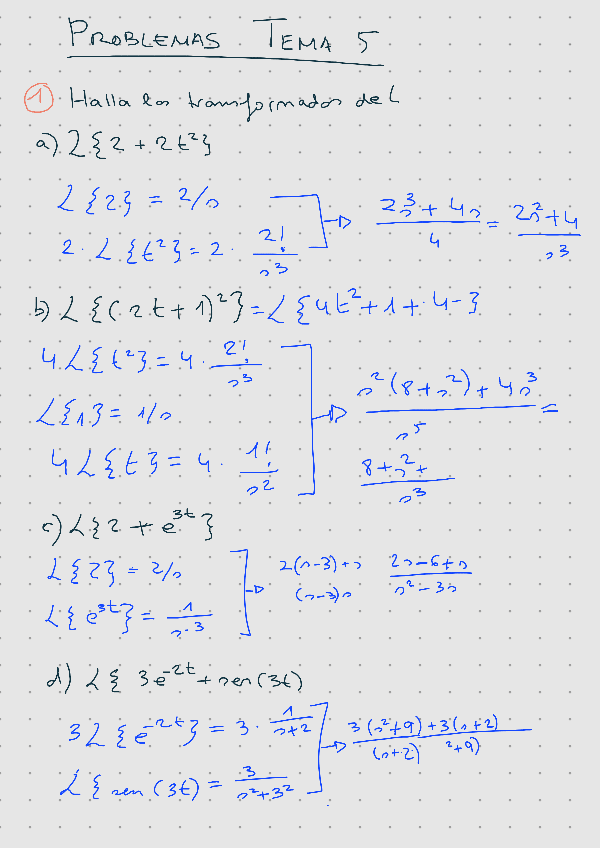 PROBLEMAS TEMA 5
1 Halla los transformados de L
a) L{2 + 2t²}
L{2} = 2/s
2 · L{t²} = 2 · 2!/s³
(2s³ + 4s)/4 = (2s² + 4)/s³
b) L{(2t + 1)²} = L{4t² + 1 + 4-}
4L{t²} = 4 · 2!/s³
L{1} = 1/s
4L{t} = 4 · 1!/s²
(s²(8 + s²) + 4s³)/s⁵ =
(8 + s² +)/s³
c) L{2 + e^3t}
L{2} = 2/s
L{e^3t} = 1/(s·3)
2(s-3) + s
(s-3)s
(2s - 6 + s)/(s² - 3s)
d) L{ 3e^-2t + sen(3t)
3L{e^-2t} = 3 · 1/(s+2)
L{ sen(3t) = 3/(s² + 3²)
3(s²+9) + 3(s+2)
(s+2) ²+9)